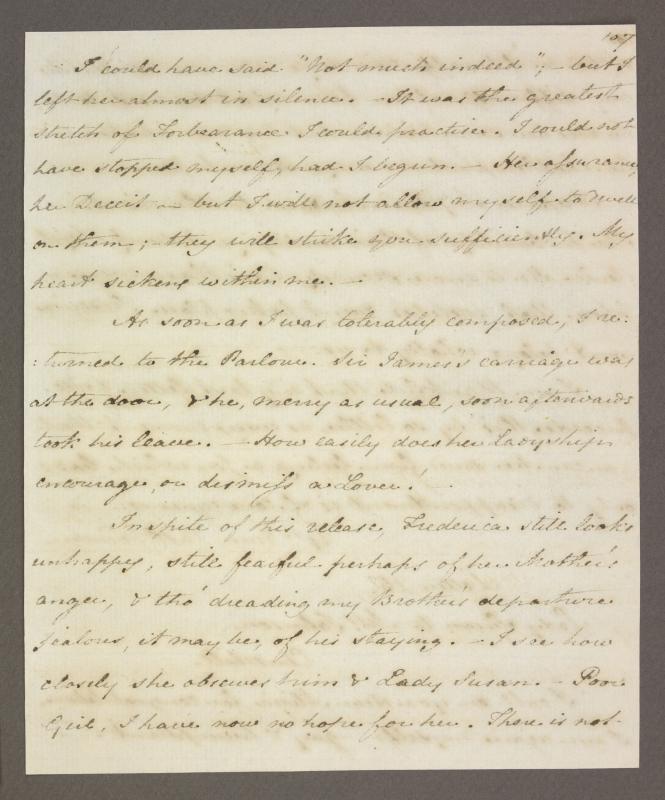 107
I could have said "Not much indeed"; - but I
left her almost in silence. - It was the greatest
stretch of Forbearance I could practise. I could not
have stopped myself, had I begun. - Her assurance,
her Deceit - but I will not allow myself to dwell
on them; - they will strike you sufficiently. My
heart sickens within me. -
As soon as I was tolerably composed, I re:
:turned to the Parlour. Sir James's carriage was
at the door, & he, merry as usual, soon afterwards
took his leave. - How easily does her Ladyship
encourage, or dismiss a Lover! -
In spite of this release, Frederica still looks
unhappy, still fearful perhaps of her Mother's
anger, & tho' dreading my Brother's departure
jealous, it may be, of his staying. - I see how
closely she observes him & Lady Susan. - Poor
Girl, I have now no hope for her. There is not